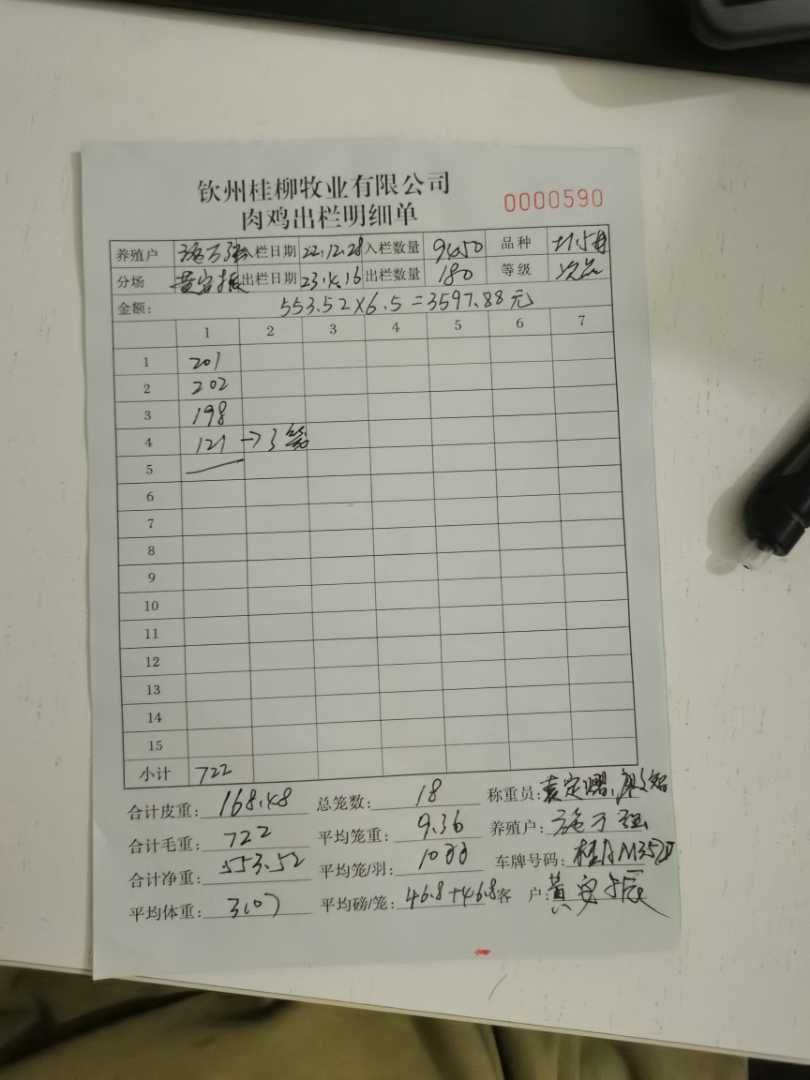 钦州桂柳牧业有限公司
肉鸡出栏明细单
0000590
养殖户 入栏日期 22.12.28 入栏数量 9450 品种
分场 黄安振 出栏日期 23.4.16 出栏数量 180 等级 次品
金额: 553.52×6.5=3597.88元
1 2 3 4 5 6 7
1 201
2 202
3 198
4 121 →3笼
5
6
7
8
9
10
11
12
13
14
15
小计 722
合计皮重: 168.48 总笼数: 18 称重员:
合计毛重: 722 平均笼重: 9.36 养殖户:
合计净重: 553.52 平均笼/羽: 10 车牌号码:
平均体重: 3.07 平均磅/笼: 46.8+46.8 客 户: 黄安振